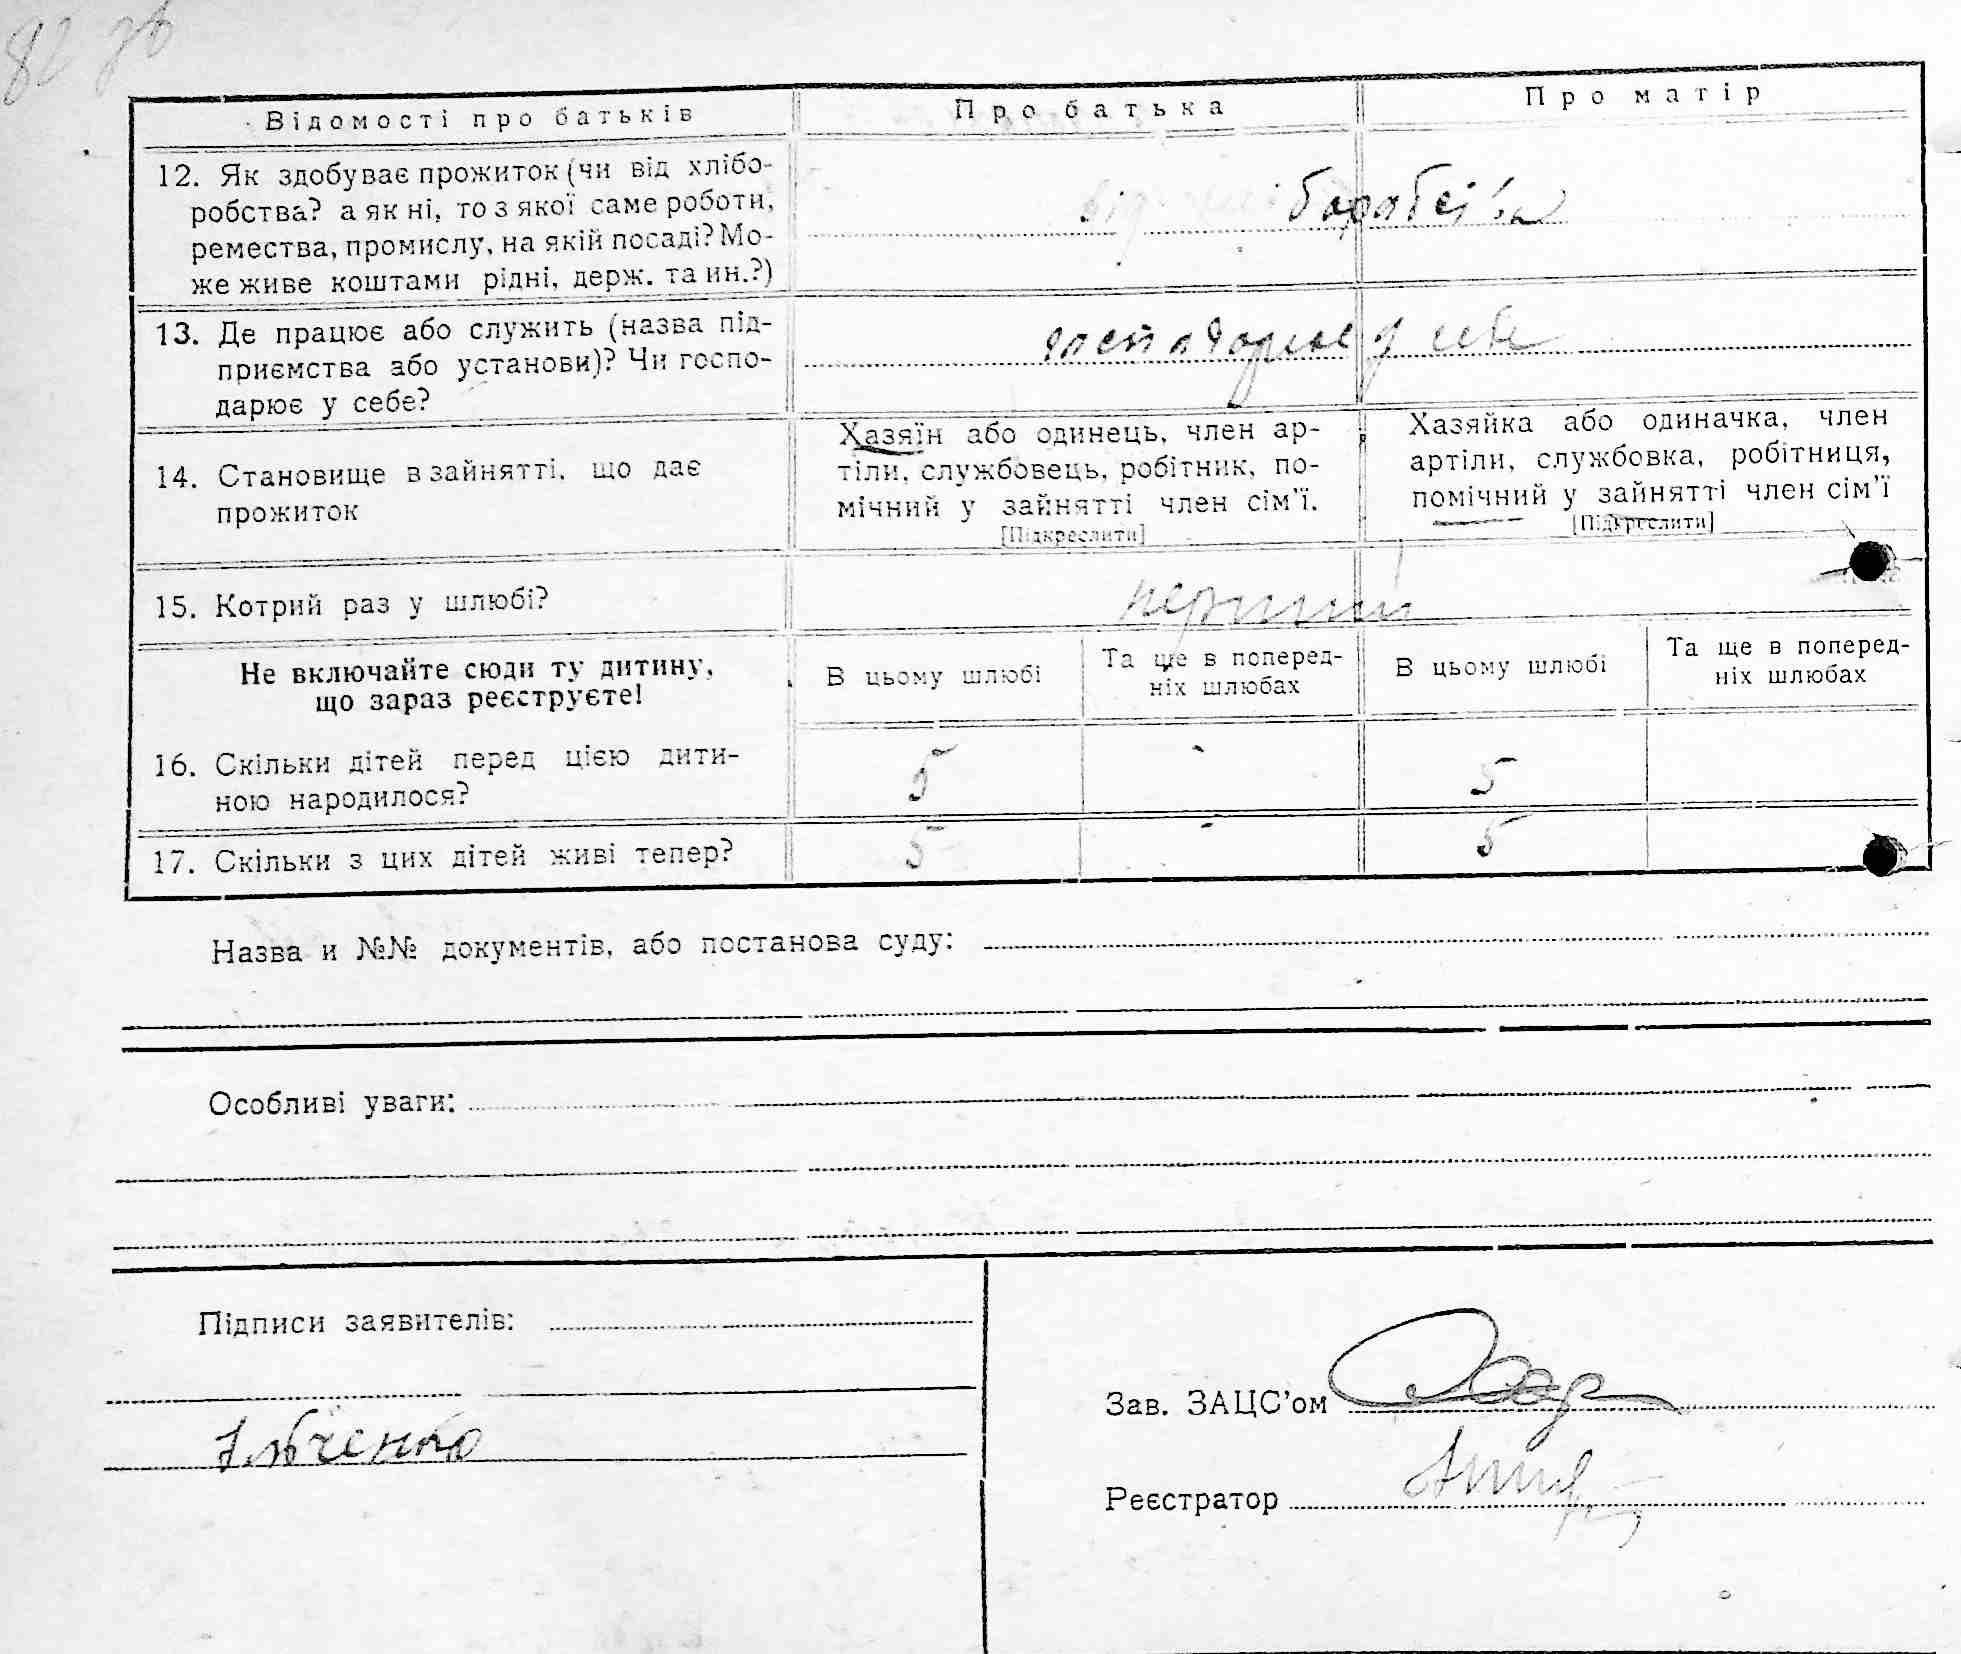 82 зв
Відомості про батьків Про батька Про матір
12. Як здобуває прожиток (чи від хлібо-
робства? а як ні, то з якої саме роботи,
ремества, промислу, на якій посаді? Мо-
же живе коштами рідні, держ. та ин.?)
від
13. Де працює або служить (назва під-
приємства або установи)? Чи госпо-
дарює у себе?
господарює у себе
14. Становище в зайнятті, що дає
прожиток
Хазяїн або одинець, член ар-
тіли, службовець, робітник, по-
мічний у зайнятті член сім'ї.
[Підкреслити]
Хазяйка або одиначка, член
артіли, службовка, робітниця,
помічний у зайнятті член сім'ї
[Підкреслити]
15. Котрий раз у шлюбі?
перший
Не включайте сюди ту дитину,
що зараз реєструєте!
В цьому шлюбі
Та ще в поперед-
ніх шлюбах
В цьому шлюбі
Та ще в поперед-
ніх шлюбах
16. Скільки дітей перед цією дити-
ною народилося?
5 - 5
17. Скільки з цих дітей живі тепер? 5 - 5
Назва и №№ документів, або постанова суду:
Особливі уваги:
Підписи заявителів:
Ільченко
Зав. ЗАЦС'ом
Реєстратор